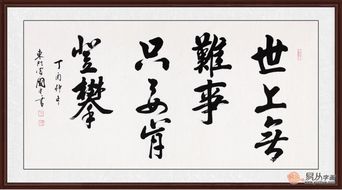 世上無
難事
只要肯
登攀
丁酉仲
易从字画